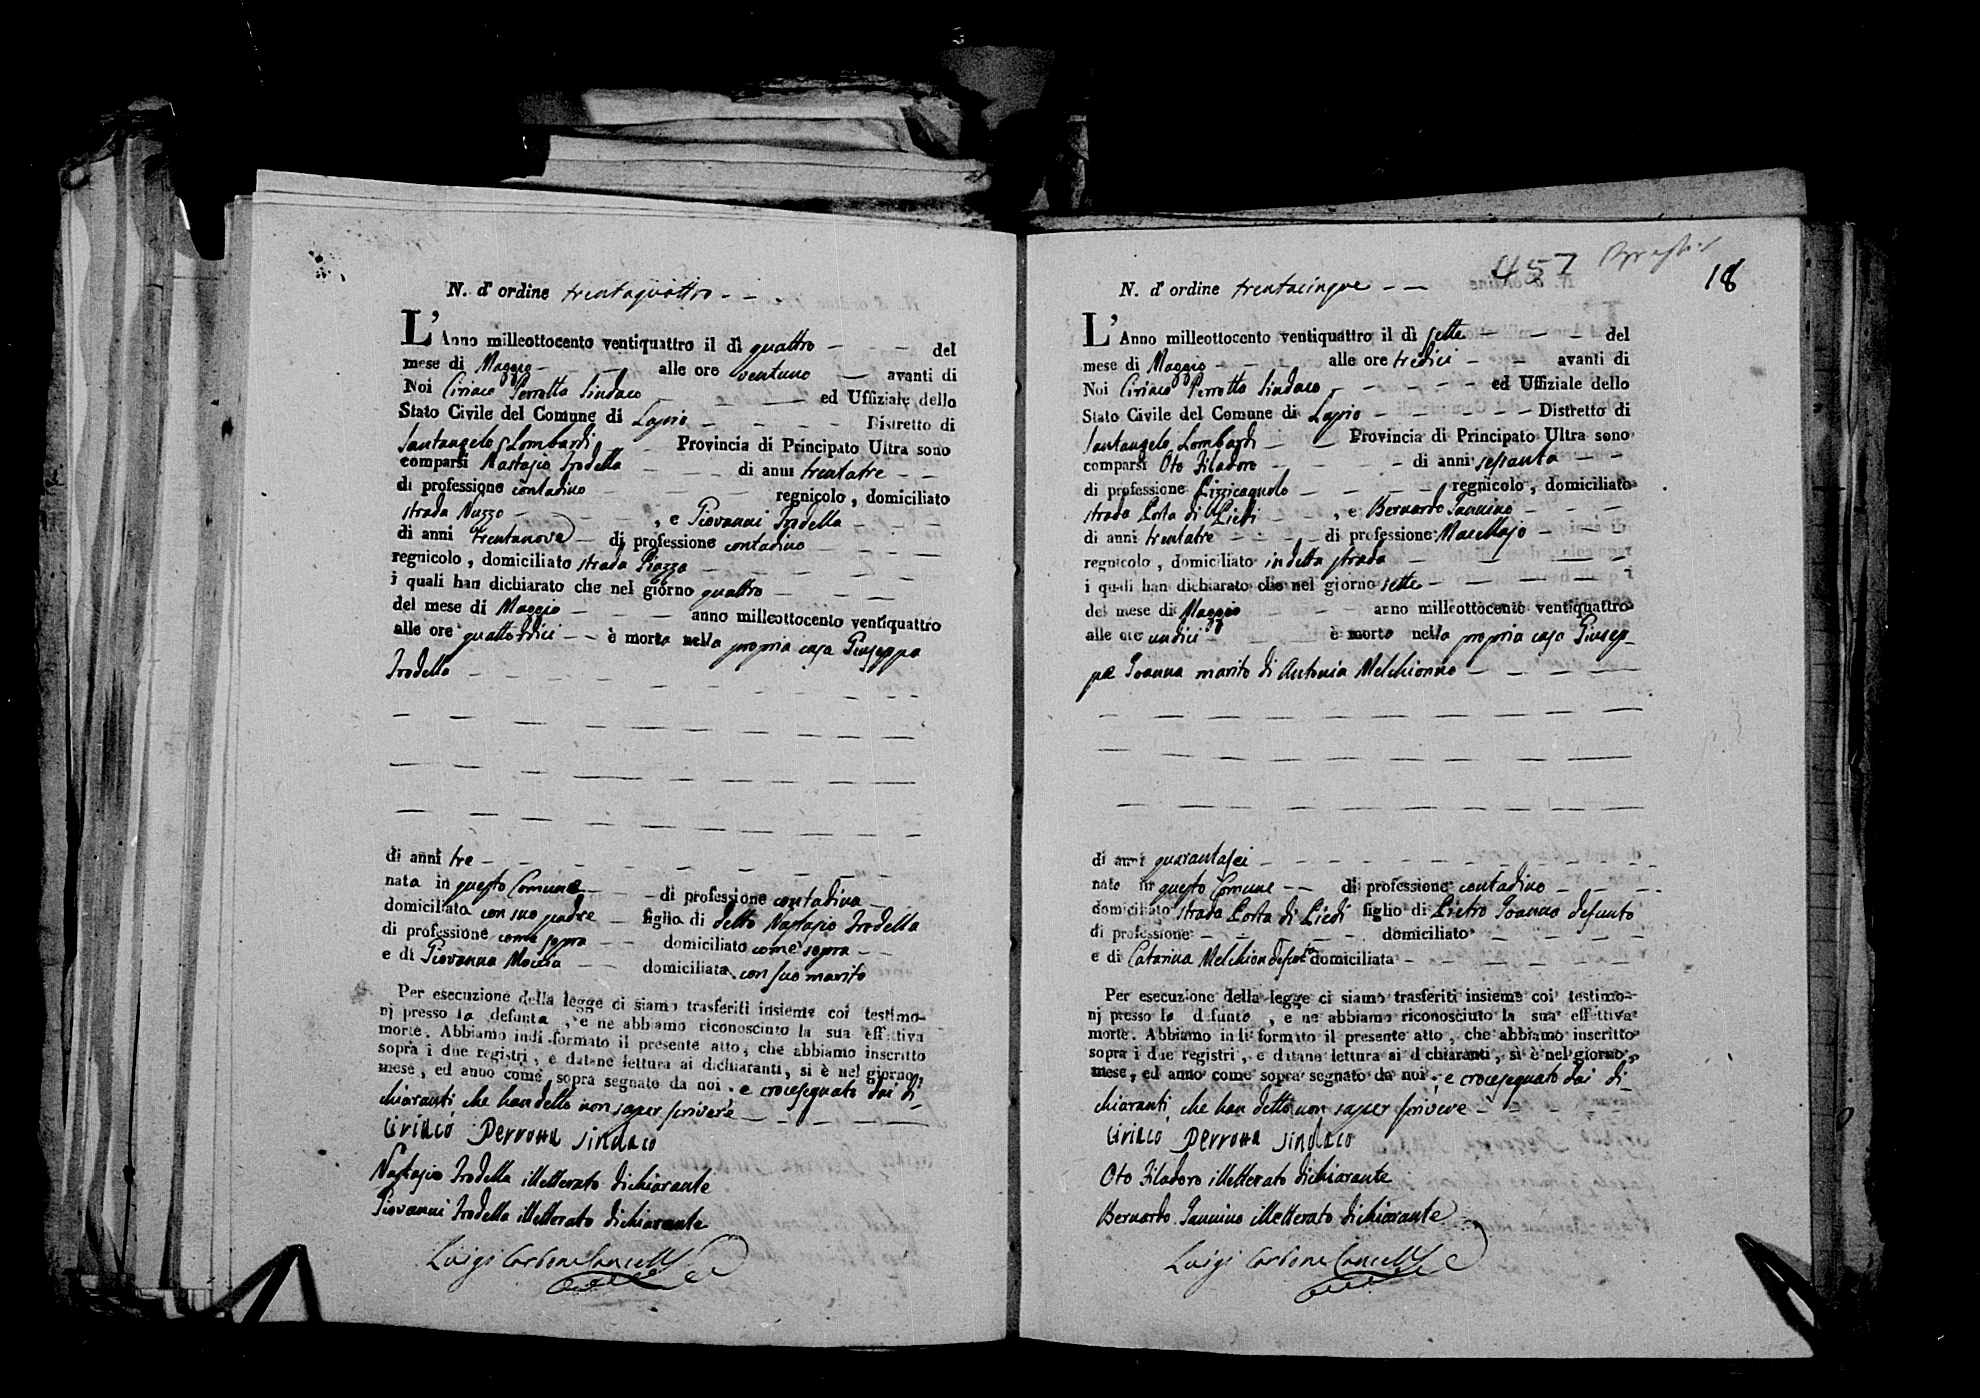 N. d' ordine trentaquattro
L' Anno milleottocento ventiquattro il dì quattro del
mese di Maggio alle ore ventuno avanti di
Noi Ciriaco Perrotta Sindaco ed Uffiziale dello
Stato Civile del Comune di Lapio Distretto di
Santangelo Lombardi Provincia di Principato Ultra sono
comparsi Nastasio Trodella di anni trentatre
di professione contadino regnicolo , domiciliato
strada Nuzzo , e Giovanni Trodella
di anni trentanove di professione contadino
regnicolo , domiciliato strada Piazza
i quali han dichiarato che nel giorno quattro
del mese di Maggio anno milleottocento ventiquattro
alle ore quattordici è morta nella propria casa Giuseppa
Trodella
di anni tre
nata in questo Comune di professione contadina
domiciliata con suo padre figlia di detto Nastasio Trodella
di professione come sopra domiciliato come sopra
e di Giovanna Moccia domiciliata con suo marito
Per esecuzione della legge ci siamo trasferiti insieme coi testimo-
nj presso la defunta , e ne abbiamo riconosciuto la sua effettiva
morte. Abbiamo indi formato il presente atto, che abbiamo inscritto
sopra i due registri, e datane lettura ai dichiaranti, si è nel giorno,
mese, ed anno come sopra segnato da noi, e crocesegnato dai di-
chiaranti, che han detto non saper scrivere
Ciriaco Perrotta Sindaco
Nastasio Trodella illetterato dichiarante
Giovanni Trodella illetterato dichiarante
Luigi Carbone Cancell
457
18
N. d' ordine trentacinque
L' Anno milleottocento ventiquattro il dì sette del
mese di Maggio alle ore tredici avanti di
Noi Ciriaco Perrotta Sindaco ed Uffiziale dello
Stato Civile del Comune di Lapio Distretto di
Santangelo Lombardi Provincia di Principato Ultra sono
comparsi Oto Filadoro di anni sessanta
di professione Pizzicagnolo regnicolo , domiciliato
strada Porta di Piedi , e Bernardo Iannino
di anni trentatre di professione Macellajo
regnicolo , domiciliato in detta strada
i quali han dichiarato che nel giorno sette
del mese di Maggio anno milleottocento ventiquattro
alle ore undici è morto nella propria casa Giusep-
pe Ioanna marito di Antonia Melchionno
di anni quarantasei
nato in questo Comune di professione contadino
domiciliato strada Porta di Piedi figlio di Pietro Ioanno defunto
di professione domiciliato
e di Catarina Melchion defunta domiciliata
Per esecuzione della legge ci siamo trasferiti insieme coi testimo-
nj presso lo defunto , e ne abbiamo riconosciuto la sua effettiva
morte. Abbiamo indi formato il presente atto, che abbiamo inscritto
sopra i due registri, e datane lettura ai dichiaranti, si è nel giorno,
mese, ed anno come sopra segnato da noi, e crocesegnato dai di-
chiaranti, che han detto non saper scrivere
Ciriaco Perrotta Sindaco
Oto Filadoro illetterato dichiarante
Bernardo Iannino illetterato dichiarante
Luigi Carbone Cancell